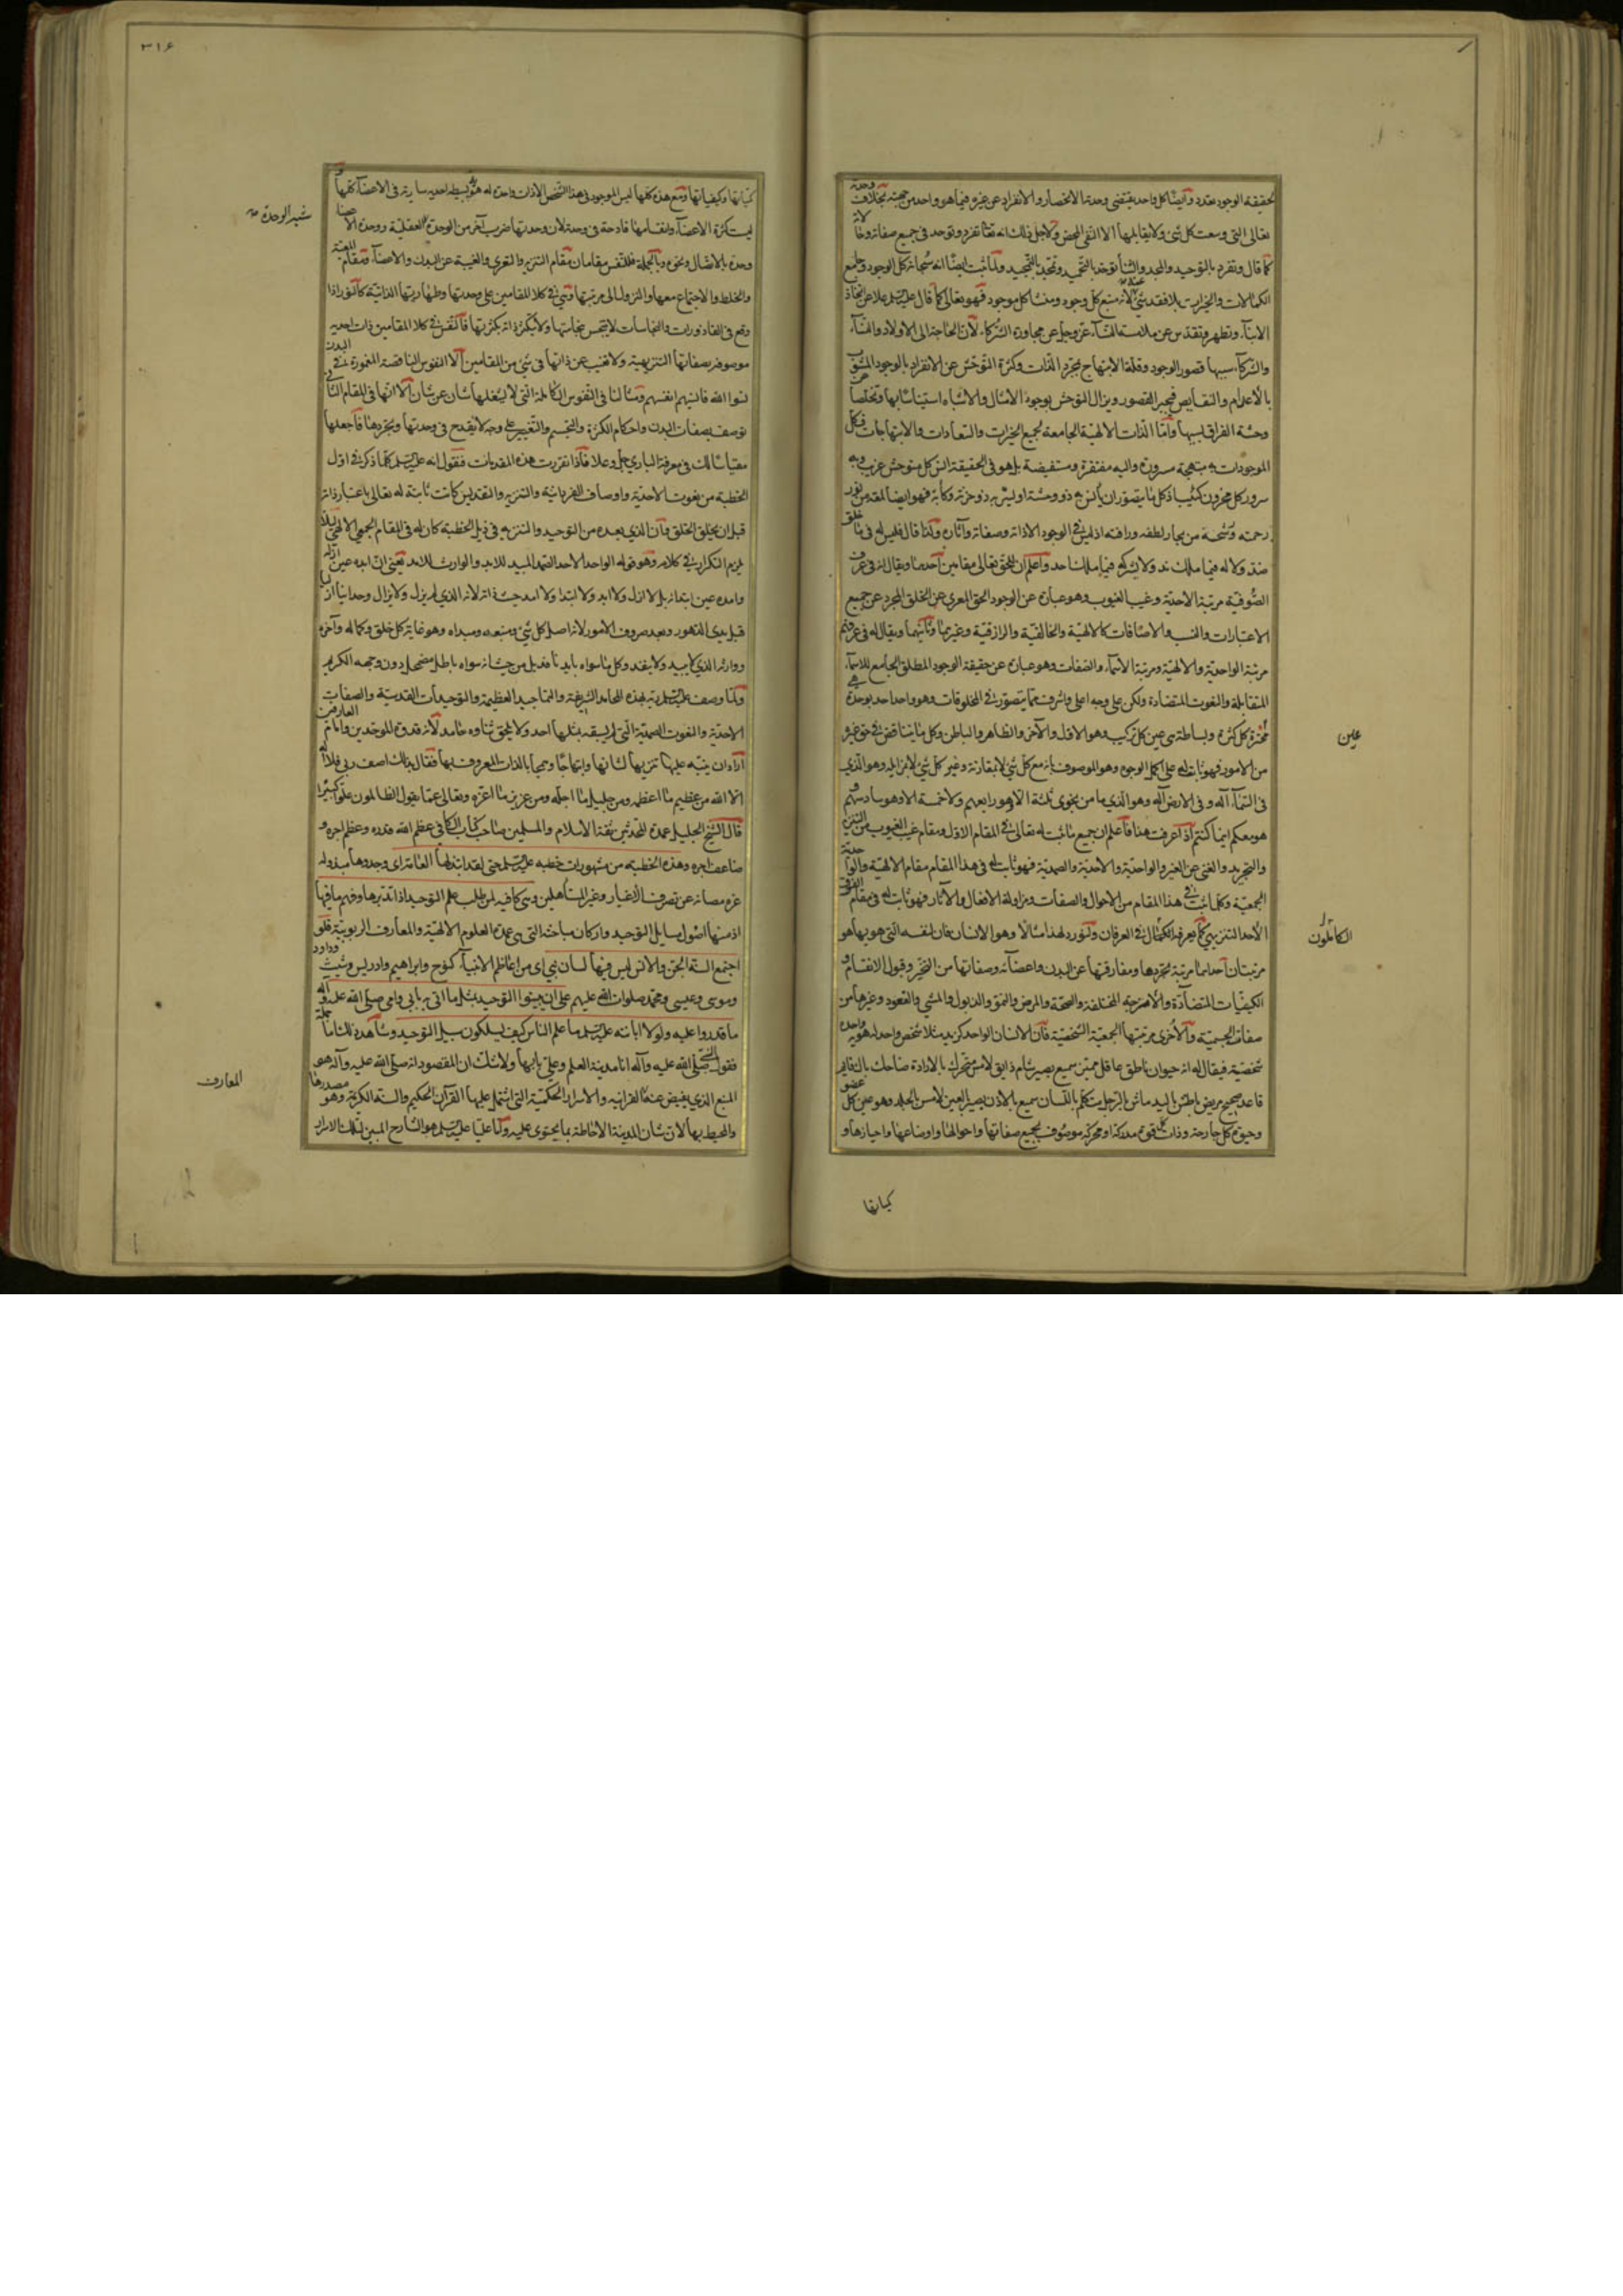 لحقيقة الوجود بمتعدد وأيضا كل واحد يقتضى وحدتها الانحصار والانفراد عن غيره فيما هو واحد من جهته بخلاف وحدته
تعالى التى وسعت كل شئ ولا يقابلها الا النفى المحض ولاجل ذلك انه تعالى تفرد وتوحد فى جميع صفاته
كما قال وتفرد بالتوحيد والمجد والثناء وتوحد بالتحميد وتمجد بالتمجيد ولما ثبت ايضا انه سبحانه كل الوجود وجامع
الكمالات والخيرات بلا فقد شئ عنه لانه منبع كل وجود ومنشأ كل موجود فهو تعالى كما قال علا عن اتخاذ
الابناء وتطهر وتقدس عن ملامسة النساء عز وجل عن مجاورة الشركاء لان الحاجة الى الاولاد والنساء
والشركاء سببها قصور الوجود وقلة الابتهاج بمجرد الذات وكثرة التوحش عن الانفراد بالوجود المشوب
بالاعدام والنقايص فيجبر القصور ويزال التوحش بوجود الامثال والاشباه استيناسا بها وتخلصا من
وحشة الفراق بسببها واما الذات الالهية الجامعة لجميع الخيرات والسعادات والابتهاجات فكل
الموجودات به مبتهجة مسرورة واليه مفتقرة ومستفيضة بل هو فى الحقيقة انس كل متوحش غريب وبه
سرور كل محزون كئيب اذ كل ما يتصور ان يأنس به ذو وحشة او ليسر به ذو حزنة وكآبة فهو ايضا لمعة من نور
رحمته ورشحة من بحار لطفه ورافته اذ ليس فى الوجود الا ذاته وصفاته وآثاره ولذا قال فليس له فى ما خلق
ضد ولا له فيما ملك ند ولا يشركه فيما ملك احد واعلم ان للحق تعالى مقامين احدهما ويقال له فى عرف
الصوفية مرتبة الاحدية وغيب الغيوب وهو عبارة عن الوجود الحق المعرى عن الخلق المجرد عن جميع
الاعتبارات والنسب والاضافات كالالهية والخالقية والرازقية وغيرها وثانيهما ويقال له فى عرفهم
مرتبة الواحدية والالهية ومرتبة الاسماء والصفات وهو عبارة عن حقيقة الوجود المطلق الجامع للاسماء
المتقابلة والنعوت المتضادة ولكن على وجه اعلى واشرف مما يتصور فى المخلوقات وهو واحد احد بوحدة هى
عين كل كثرة وبساطته هى عين كل تركيب وهو الاول والآخر والظاهر والباطن وكل ما يتناقض فى حق غيره
من الامور فهو ثابت له على اكمل الوجوه وهو الموصوف بانه مع كل شئ لا بمقارنة وغير كل شئ لا بمزايلة وهو الذى
فى السماء اله وفى الارض اله وهو الذى ما من نجوى ثلثة الا هو رابعهم ولا خمسة الا وهو سادسهم
وهو معكم اينما كنتم اذا عرفت هذا فاعلم ان جميع ما ثبت له تعالى فى المقام الاول ومقام غيب الغيوب من التنزيه
والتجريد والغنى عن الغير والواحدية والاحدية والصمدية فهو ثابت له فى هذا المقام مقام الالهية والواحدية
الجمعية وكلما ثبت فى هذا المقام من الاحوال والصفات ومزاولة الافعال والآثار فهو ثابت له فى مقام الفرق
الاحد التنزيهى كما يعرفه الكاملون فى العرفان ولنورد لهذا مثالا وهو الانسان فان لنفسه التى هو بها هو
مرتبتان احديهما مرتبة تجردها ومفارقتها عن البدن واعضائه وصفاتها من التحيز وقبول الانقسام و
الكيفيات المتضادة والامزجة المختلفة والصحة والمرض والنمو والذبول والمشى والقعود وغيرها من
صفات الجسمية والاخرى مرتبتها الجمعية الشخصية فان الانسان الواحد كزيد مثلا شخص واحد له هوية واحدة
شخصية فيقال له انه حيوان ناطق عاقل مميز سميع بصير شام ذايق لامس متحرك بالارادة ضاحك باك قايم
قاعد صحيح مريض باطش باليد ماش بالرجل يتكلم باللسان سميع بالاذن بصير بالعين لامس بالجلد وهو عين كل عضو
وحيوة كل جارحة وذات كل قوة مدركة او محركة موصوف بجميع صفاتها واحوالها واوضاعها واحيازها و
كمياتها
عين
الكاملون
٣١٤
كمياتها وكيفياتها ومع هذه كلها ليس الموجود فى هذا الشخص الا ذات واحدة له هوية بسيطة احدية سارية فى الاعضاء كلها
ليست كثرة الاعضاء وانقسامها قادحة فى وحدته لان وحدتها ضرب آخر من الوحدة غير الوحدة العقلية ووحدة الاعضاء
وحدة بالاتصال ونحوه وبالجملة فللنفس مقامان مقام التنزيه والتعرى والغيبة عن البدن والاعضاء ومقام المعية
والخلط والاجتماع معها والنزول الى مرتبتها وهى فى كلا المقامين على وحدتها وطهارتها الذاتية كالنور اذا
وقع فى القاذورات والنجاسات لا يتنجس بنجاستها ولا يتكثر ذاته بكثرتها فالنفس فى كلا المقامين ذات احدية
موصوفة بصفاتها التنزيهية ولا تغيب عن ذاتها فى شئ من المقامين الا النفوس الناقصة المغمورة فى البدن
نسوا الله فانسيهم انفسهم ومثالنا فى النفوس الكاملة التى لا يشغلها شأن عن شأن الا انها فى المقام الثانى
توصف بصفات البدن واحكام الكثرة والتجسم والتغيير على وجه لا يقدح فى وحدتها وتجردها فاجعلها
مقياسا لك فى معرفة البارى جل وعلا فاذا تقررت هذه المقدمات فنقول انه كلما ذكر فى اول
الخطبة من نعوت الاحدية واوصاف الفردانية والتنزيه والتقديس كانت ثابتة له تعالى باعتبار ذاته
قبل ان يخلق الخلق وان الذى بعده من التوحيد والتنزيه فى ذيل الخطبة كان له فى المقام الجمعى الالهى لئلا
يلزم التكرار فى كلامه وهو قوله الواحد الاحد الصمد المبيد للابد والوارث للامد يعنى ان ابده عين ازله
وامده عين ابتدائه بل لا ازل ولا ابد ولا ابتدا ولا امد حيث ذاته لانه الذى لم يزل ولا يزال وحدانيا ازليا
قبل بدى الدهور وبعد صروف الامور لانه اصل كل شئ ومنبعه ومبداه وهو غاية كل خلق وكماله وآخره
ووارثه الذى لا يبيد ولا ينفد وكل ما سواه بايد نافد بل من حيث انه سواه باطل مضمحل دون وجهه الكريم
ولما وصف ربه بهذه المحامد الشريفة والتماجيد العظيمة والتوحيدات القدسية والصفات
الاحدية والنعوت الصمدية التى لم يسبقه بمثلها احد ولا يلحق ثناوه حامد لانه قدوة الموحدين وامام العارفين
اراد ان ينبه عليها تنزيها لشانها وابتهاجا بالذات المعروف بها فقال بذلك اصف ربى فلا اله
الا الله من عظيم ما اعظمه ومن جليل ما اجله ومن عزيز ما اعزه وتعالى عما يقول الظالمون علوا كبيرا
قال الشيخ الجليل عمدة المحدثين ثقة الاسلام والمسلمين صاحب كتاب الكافى عظم الله قدره وعظم اجره و
ضاعف اجره وهذه الخطبة من مشهورات خطبه حتى لقد ابتذلها العامة اى وجدوها مبذولة
غير مصانة عن تصرف الاغيار وغير المتأهلين وهى كافية لمن طلب علم التوحيد اذا تدبرها وفهم ما فيها
اذ منها اصول مسايل التوحيد واركان مباحثه التى هى عمدة العلوم الالهية والمعارف الربوبية فلو
اجتمع السنة الجن والانس ليس فيها لسان نبى اى من اعاظم الانبياء كنوح وابراهيم وادريس وشيث وداود
وموسى وعيسى ومحمد صلوات الله عليهم على ان يبينوا التوحيد بمثل ما اتى به بابى وامى صلى الله عليه وآله
ما قدروا عليه ولولا ابانته ما علم الناس كيف يسلكون سبيل التوحيد وشاهده
فقول النبى صلى الله عليه وآله انا مدينة العلم وعلى بابها ولا شك ان المقصود انه صلى الله عليه وآله هو
المنبع الذى يفيض عنه القرانية والاسرار الحكمية التى اشتمل عليها القرآن الحكيم والسنة الكريمة وهو مصدرها
والمحيط بها لان شان المدينة الاحاطة بما يحتوى عليه وان عليا هو الشارح المبين لتلك الاسرار
غير الوحدة
المعارف